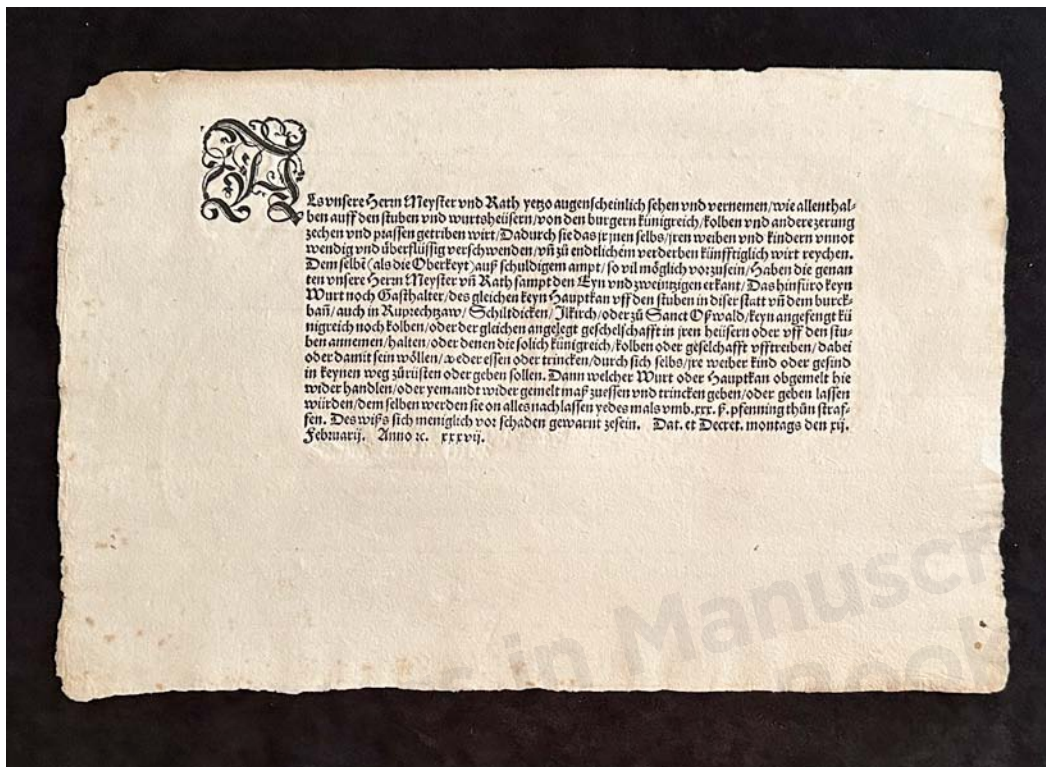 ALs vnsere Herrn Meyster vnd Rath yetzo augenscheinlich sehen vnd vernemen/wie allenthal-
ben auff den stuben vnd wurtsheüsern/von den burgern künigreich/kolben vnd andere zerung
zechen vnd prassen getriben wirt/Dadurch sie das jr jnen selbs/jren weiben vnd kindern vnnot
wendig vnd überflüssig verschwenden/vñ zů endtlichem verderben künfftiglich wirt reychen.
Dem selbē (als die Oberkeyt) auß schuldigem ampt/so vil möglich vorzusein/Haben die genan
ten vnsere Herrn Meyster vñ Rath sampt den Eyn vnd zweintzigen erkant/Das hinfüro keyn
Wurt noch Gasthalter/des gleichen keyn Hauptkan vff den stuben in diser statt vñ dem burck-
bañ/auch in Ruprechtzaw/Schiltdicken/Jlkirch/oder zů Sanct Oßwald/keyn angefengt kü
nigreich noch kolben/oder der gleichen angelegt geschelschafft in jren heüsern oder vff den stu-
ben annemen/halten/oder denen die solich künigreich/kolben oder geselschafft vfftreiben/dabei
oder damit sein wöllen/weder essen oder trincken/durch sich selbs/jre weiber kind oder gesind
in keynen weg zůrüsten oder geben sollen. Dann welcher Wurt oder Hauptkan obgemelt hie
wider handlen/oder yemandt wider gemelt maß zuessen vnd trincken geben/oder geben lassen
würden/dem selben werden sie on alles nachlassen yedes mals vmb .xxx. ß. pfenning thůn straf-
fen. Des wiß sich meniglich vor schaden gewarnt zesein. Dat. et Decret. montags den xij.
Februarij. Anno ꝛc. xxxvij.
in Manuscr